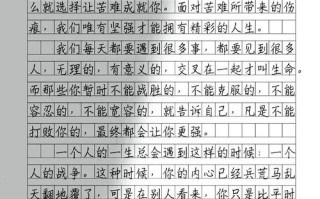 么就选择让苦难成就你。面对苦难所带来的伤
痕，我们唯有坚强才能拥有精彩的人生。
我们每天都要遇到很多事，都要见到很多
人，无理的，有意义的，交叉在一起才叫生命。
而那些你暂时不能战胜的，不能克服的，不能
容忍的，不能宽容的，就告诉自己，凡是不能
打败你的，最终都会让你更强。
一个人的一生总会遇到这样的时候：一个
人的战争。这种时候，你的内心已经兵荒马乱
天翻地覆了，可是在别人看来，你只是比平时